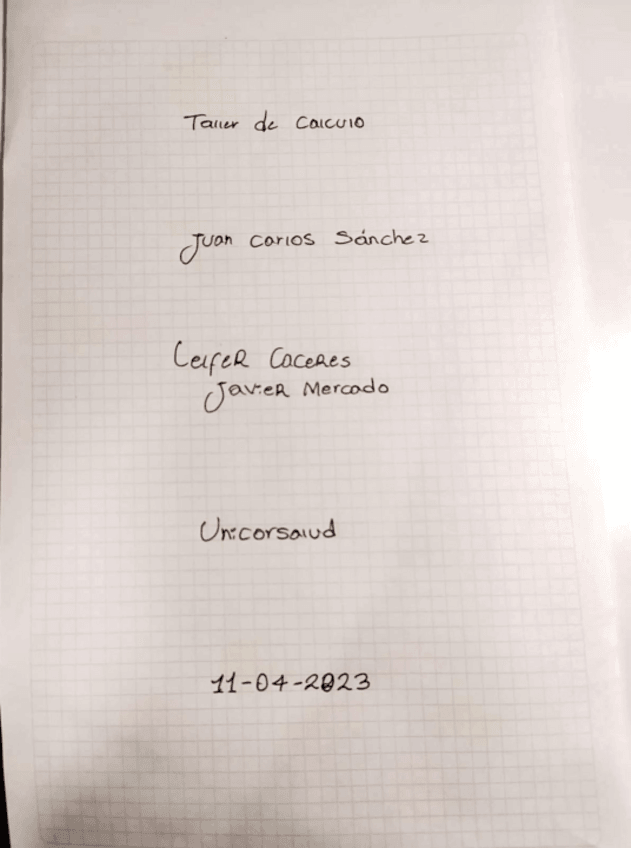 Taller de Calculo
Juan Carlos Sánchez
Leifer Caceres
Javier Mercado
Unicorsalud
11-04-2023